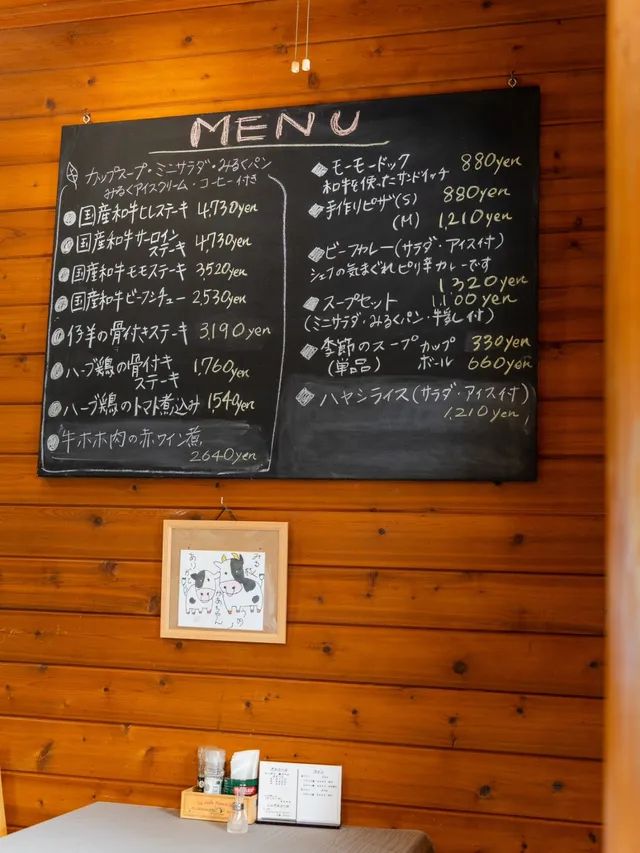 MENU
カップスープ・ミニサラダ・みるくパン
みるくアイスクリーム・コーヒー付き
国産和牛ヒレステーキ 4,730yen
国産和牛サーロイン
ステーキ 4,730yen
国産和牛モモステーキ 3520yen
国産和牛ビーフシチュー 2,530yen
仔羊の骨付きステーキ 3,190yen
ハーブ鶏の骨付き
ステーキ 1,760yen
ハーブ鶏のトマト煮込み 1,540yen
牛ホホ肉の赤ワイン煮
2640yen
モーモードック 880yen
和牛を使ったサンドイッチ
手作りピザ(S) 880yen
(M) 1,210yen
ビーフカレー(サラダ・アイス付)
シェフの気まぐれピリ辛カレーです
1320yen
スープセット 1,100yen
(ミニサラダ・みるくパン・牛乳付)
季節のスープ カップ 330yen
(単品) ボール 660yen
ハヤシライス(サラダ・アイス付)
1,210yen